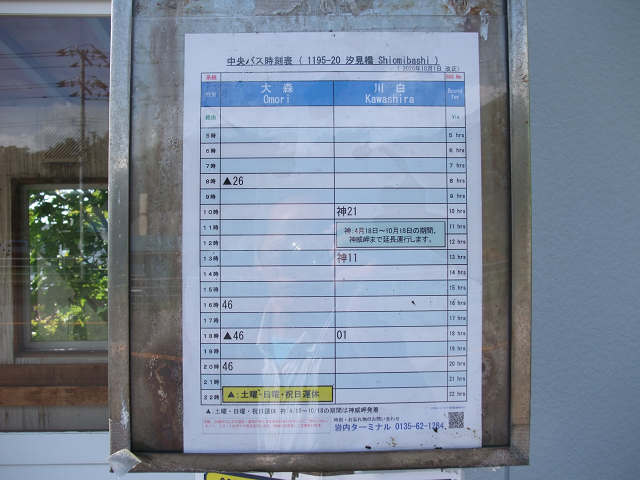 中央バス時刻表 ( 1195-20 汐見橋 Shiomibashi )
( 2020年10月1日 改正)
系統
行先 大森 Omori 川白 Kawashira Bound for
経由 Via
5時 5 hrs
6時 6 hrs
7時 7 hrs
8時 ▲26 8 hrs
9時 9 hrs
10時 神21 10 hrs
11時 11 hrs
神:4月18日～10月18日の期間、
神威岬まで延長運行します。
12時 12 hrs
13時 神11 13 hrs
14時 14 hrs
15時 15 hrs
16時 46 16 hrs
17時 17 hrs
18時 ▲46 01 18 hrs
19時 19 hrs
20時 46 20 hrs
21時 21 hrs
22時 22 hrs
▲:土曜・日曜・祝日運休
▲:土曜・日曜・祝日運休 神:4/18～10/18の期間は神威岬発着
時刻・お忘れ物のお問い合わせ
岩内ターミナル 0135-62-1284